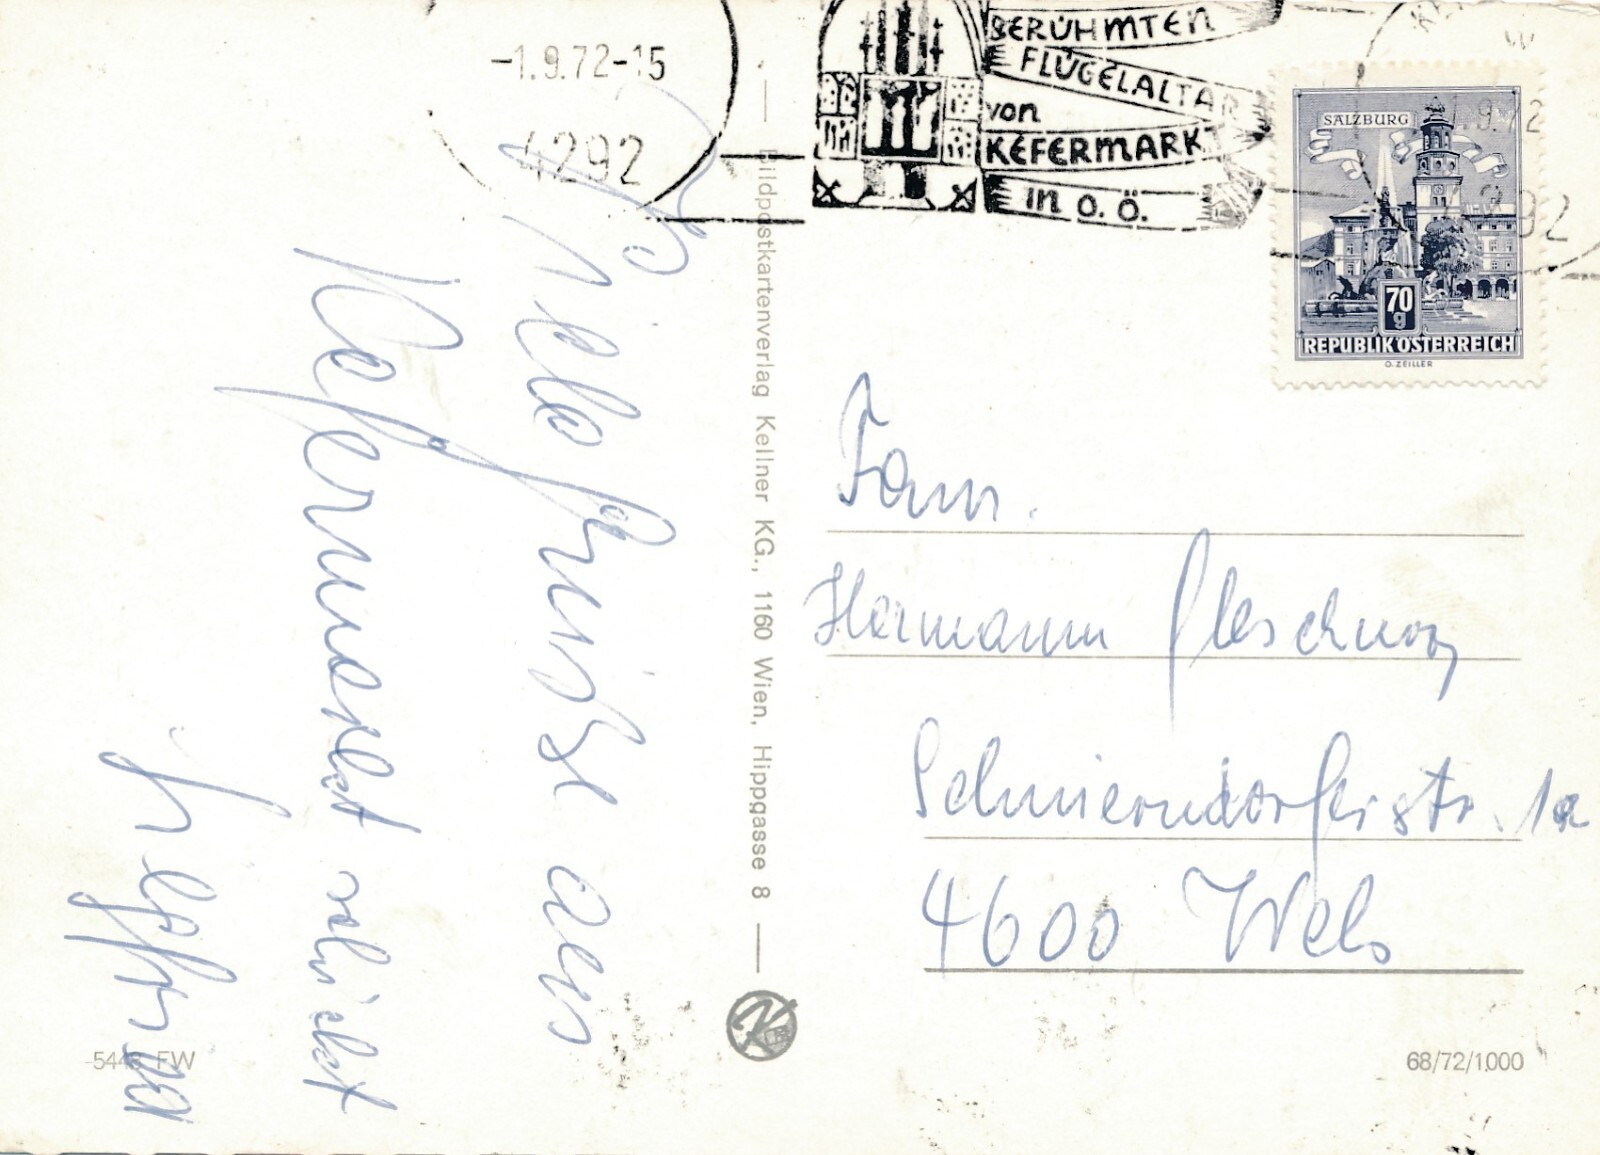 -1.9.72-15
4292
BERÜHMTEN
FLÜGELALTAR
von
KEFERMARKT
in O.Ö.
SALZBURG
70
g
REPUBLIK ÖSTERREICH
O. ZEILLER
9.72
92
Viele Grüsse aus
Kefermarkt schickt
Bildpostkartenverlag Kellner KG., 1160 Wien, Hippgasse 8
Fam.
Hermann
Schmierndorferstr. 1a
4600 Wels
EW
68/72/1.000